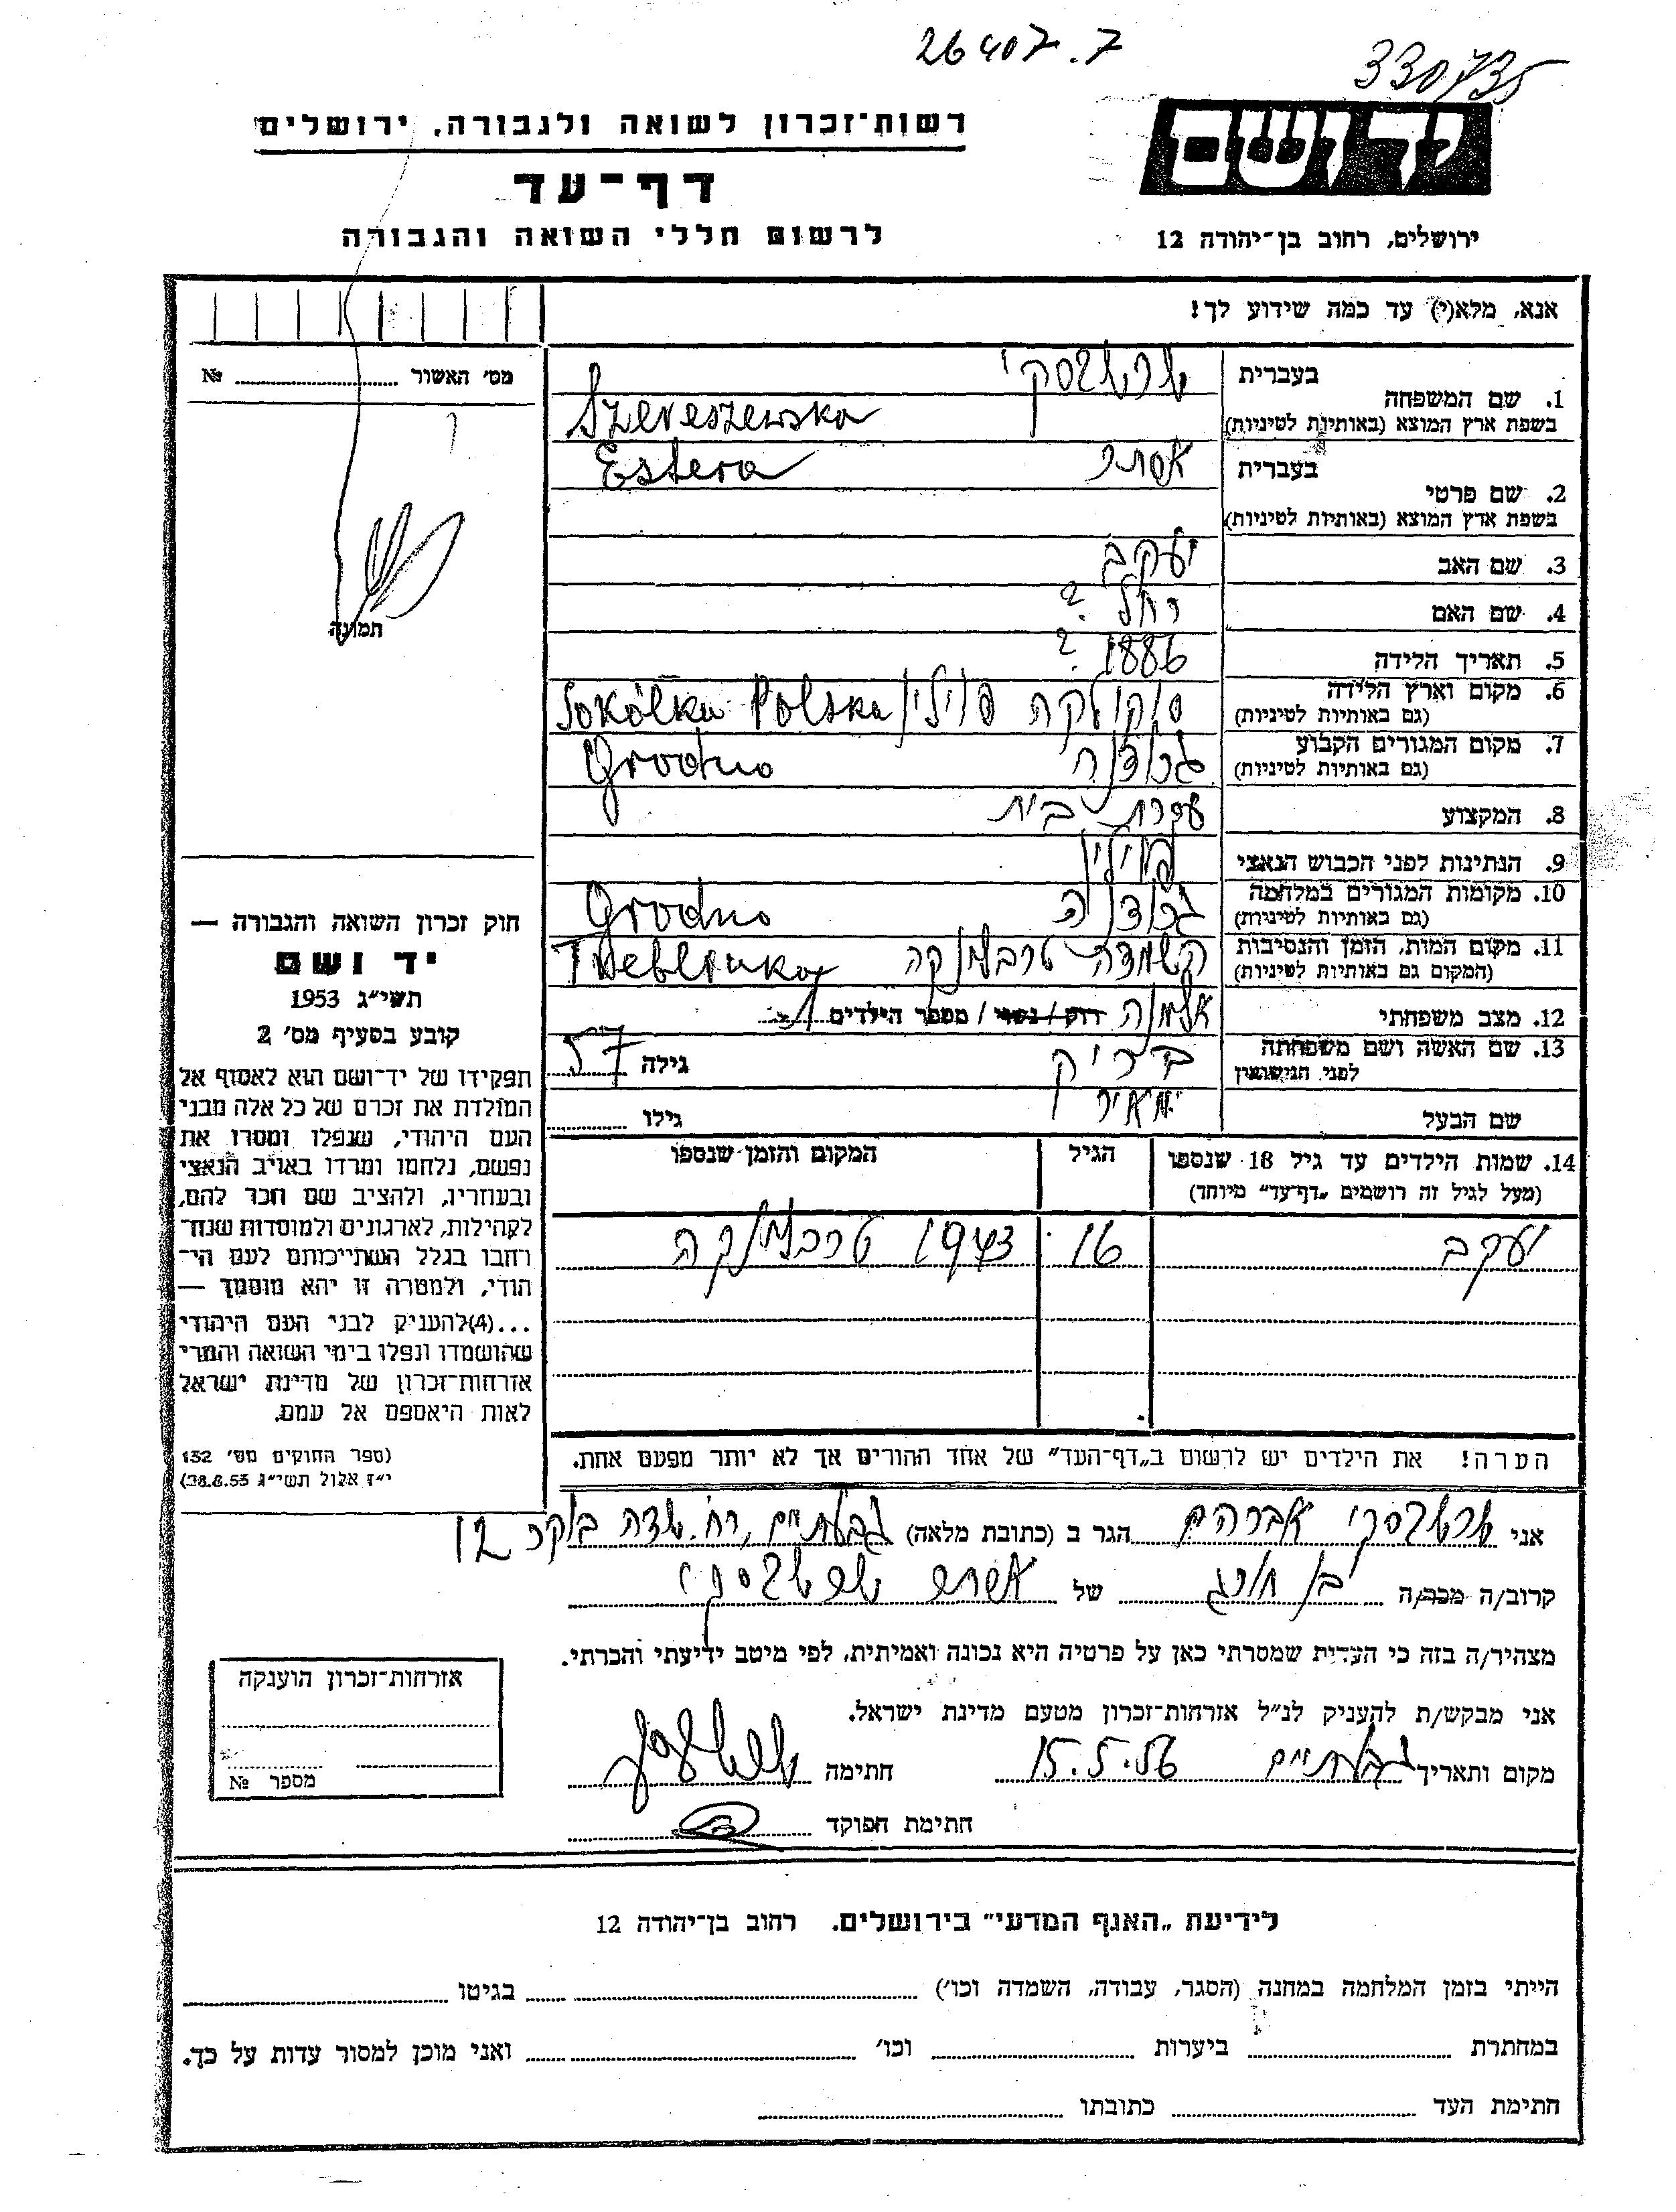 26407.7
330735
רשות־זכרון לשואה ולגבורה, ירושלים
יד ושם
דף־עד
לרשום חללי השואה והגבורה
ירושלים, רחוב בן־יהודה 12
אנא, מלא(י) עד כמה שידוע לך!
מס׳ האשור № 
1. שם המשפחה בעברית שרשבסקי
בשפת ארץ המוצא (באותיות לטיניות) Szereszewska
2. שם פרטי בעברית אסתר
בשפת ארץ המוצא (באותיות לטיניות) Estera
3. שם האב יעקב
4. שם האם רחל ?
5. תאריך הלידה 1886 ?
6. מקום וארץ הלידה (גם באותיות לטיניות) סוקולקה פוילין Sokółka Polska
7. מקום המגורים הקבוע (גם באותיות לטיניות) גרודנה Grodno
8. המקצוע עקרת בית
9. הנתינות לפני הכבוש הנאצי פוילין
10. מקומות המגורים במלחמה (גם באותיות לטיניות) גרודנה Grodno
11. מקום המות, הזמן והנסיבות (המקום גם באותיות לטיניות) השמדה טרבלינקה Treblinka
12. מצב משפחתי אלמנה רוק / נשוי / מספר הילדים
13. שם האשה ושם משפחתה לפני הנישואין גילה 57
שם הבעל מאיר גילו
14. שמות הילדים עד גיל 18 שנספו
(מעל לגיל זה רושמים „דף־עד” מיוחד)
הגיל
המקום והזמן שנספו
יעקב 16 1943 טרבלינקה
תמונה
חוק זכרון השואה והגבורה —
יד ושם
תשי״ג 1953
קובע בסעיף מס׳ 2
תפקידו של יד־ושם הוא לאסוף אל
המולדת את זכרם של כל אלה מבני
העם היהודי, שנפלו ומסרו את
נפשם, נלחמו ומרדו באויב הנאצי
ובעוזריו, ולהציב שם וזכר להם,
לקהילות, לארגונים ולמוסדות שנח־
רחבו בגלל השתייכותם לעם הי־
הודי, ולמטרה זו יהא מוסמך —
...(4)להעניק לבני העם היהודי
שהושמדו ונפלו בימי השואה והמרי
אזרחות־זכרון של מדינת ישראל
לאות היאספם אל עמם.
(ספר החוקים מס׳ 132
י״ז אלול תשי״ג 28.8.53)
הערה! את הילדים יש לרשום ב„דף־העד” של אחד ההורים אך לא יותר מפעם אחת.
אני שרשבסקי אברהם הגר ב (כתובת מלאה) גבעתיים, רח. שדה בוקר 12
קרוב/ה מכר/ה בן חורג של אסתר שרשבסקי
מצהיר/ה בזה כי העדות שמסרתי כאן על פרטיה היא נכונה ואמיתית, לפי מיטב ידיעתי והכרתי.
אני מבקש/ת להעניק לנ״ל אזרחות־זכרון מטעם מדינת ישראל.
מקום ותאריך גבעתיים 15.5.56 חתימה
חתימת הפוקד
אזרחות־זכרון הוענקה
מספר №
לידיעת „האגף המדעי” בירושלים. רחוב בן־יהודה 12
הייתי בזמן המלחמה במחנה (הסגר, עבודה, השמדה וכו׳) בגיטו
במחתרת ביערות וכו׳ ואני מוכן למסור עדות על כך.
חתימת העד כתובתו